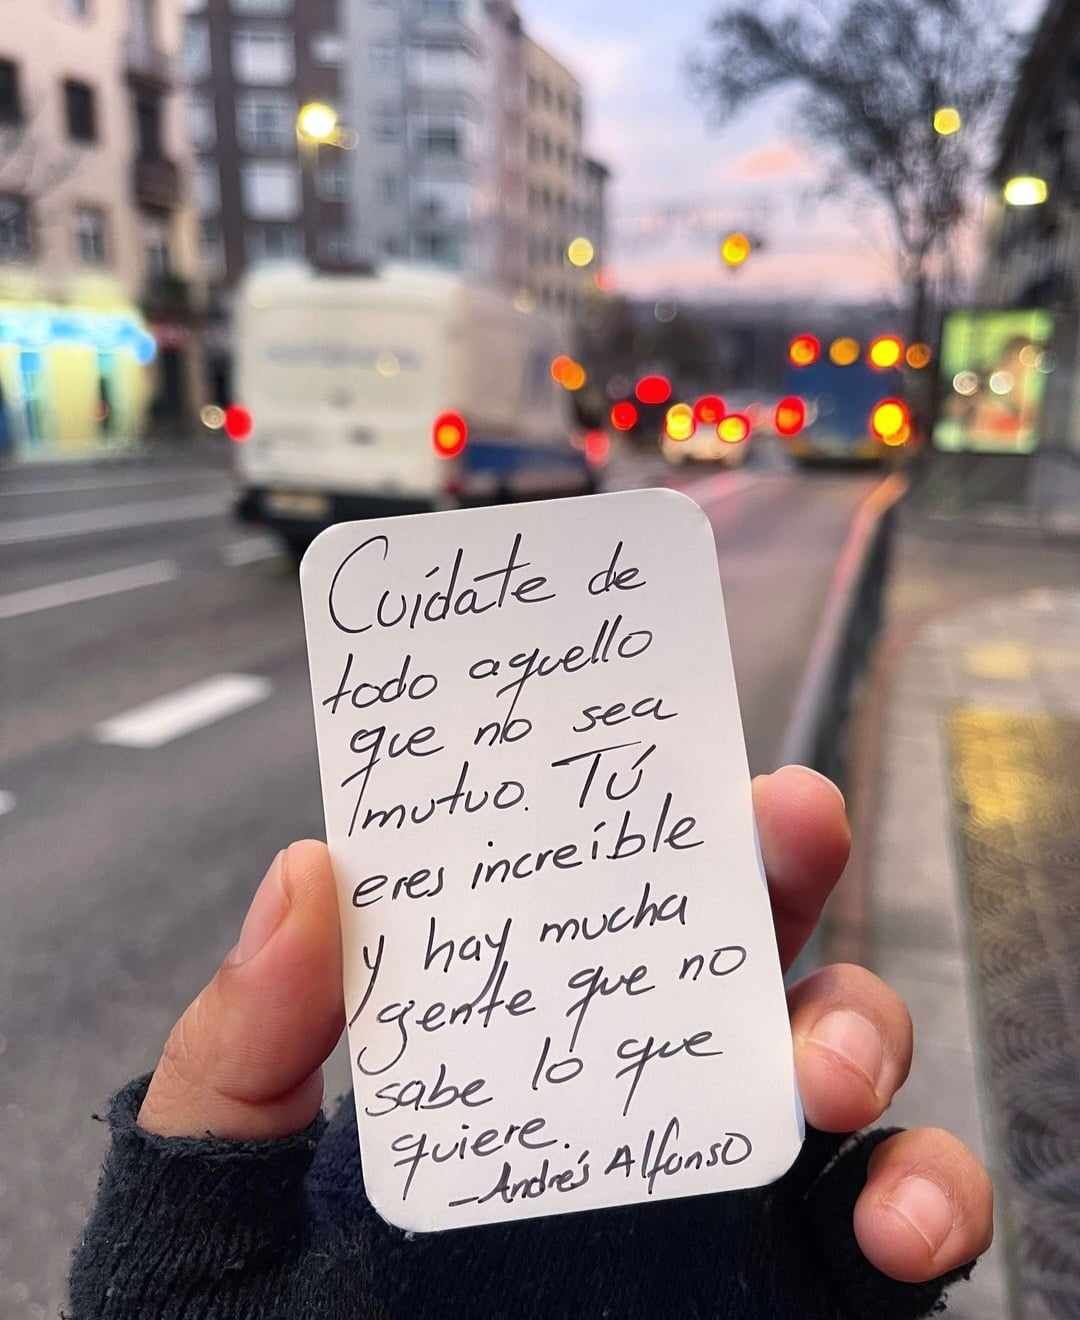 Cuídate de
todo aquello
que no sea
mutuo. Tú
eres increíble
y hay mucha
gente que no
sabe lo que
quiere.
—Andrés Alfonso